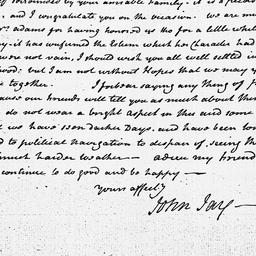 surrounded by your amiable Family. it is a
and I congratulate you on the occasion. we are
adams for having honored us tho for a little while
it has confirmed the Esteem which his Character had
were not vain, I should wish you all well settled in
but I am not without Hopes that we may y
together. I forbear saying any thing of
cause our friends will tell you as much about them
do not wear a bright aspect in this and some
we have seen darker Days, and have been too
to political navigation to despair of seeing the
much harder weather — adieu my friend
continue to do good and be happy —
yours affecly
John Jay —